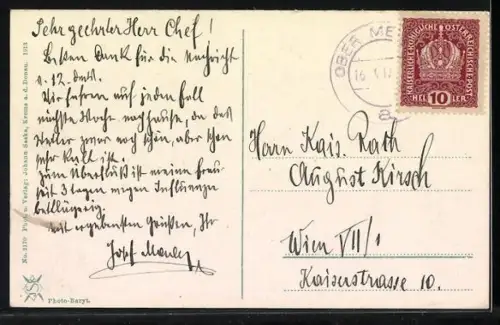 Sehr geehrter Herr Chef!
Besten Dank für die Nachricht
v. 12. dM.
Wir fahren auf jeden Fall
nächste Woche nachhause, da das
Wetter zwar noch schön, aber schon
sehr kalt ist.
Zum Überfluß ist meine Frau
seit 3 tagen wegen Influenza
bettlägerig.
mit ergebensten Grüßen, Ihr
Josef
No. 3170 Photo u. Verlag: Johann Sacha, Krems a. d. Donau. 1913
Photo-Baryt.
OBER
16
8
KAISERLICHE KÖNIGLICHE ÖSTERREICHISCHE POST
HELLER
10
Herrn Kais. Rath
August Kirsch
Wien VII/1
Kaiserstrasse 10.